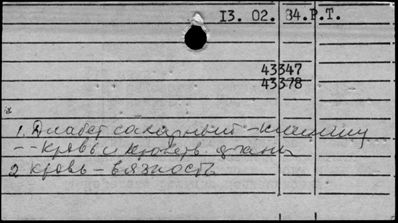 13. 02. 84.Р.Т.
43347
43378
1. Диабет сахарный - клинику
-- Кровь и кроветв. ткани
2 кровь - вязкость